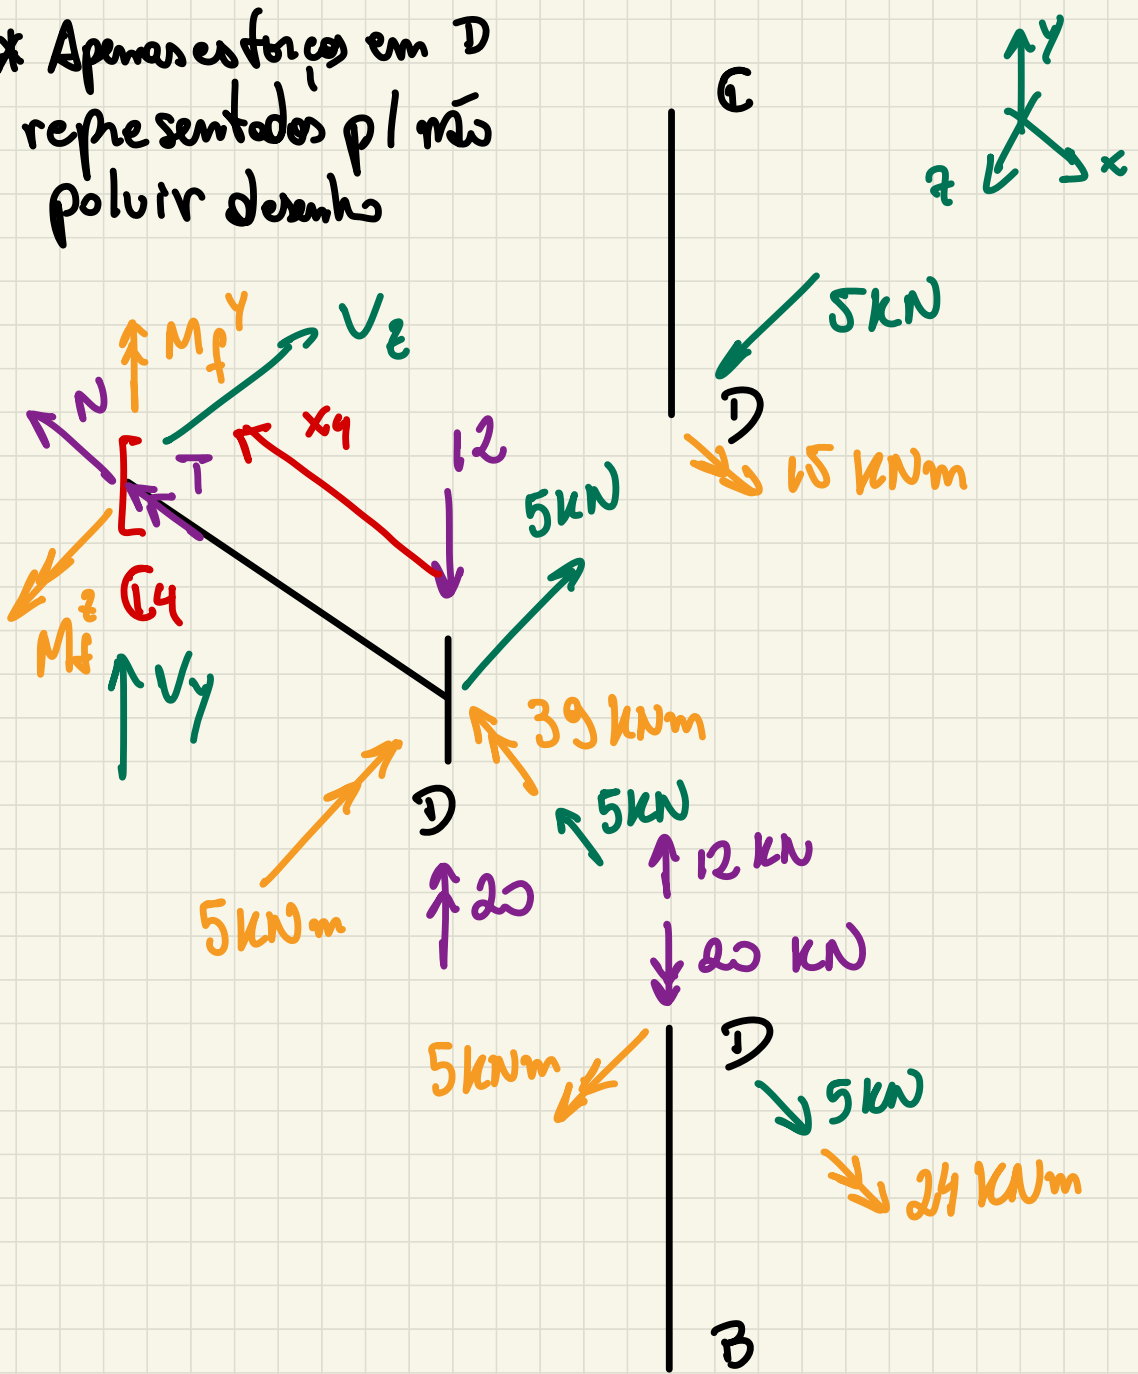 * Apenas esforços em D
representados p/ não
poluir desenho
C
y
z
x
5kN
D
15 kNm
Mfy
Vz
N
T
x4
12
5kN
Mfz
C4
Vy
39 kNm
D
5kN
12 kN
5kNm
20
20 kN
5kNm
D
5kN
24 kNm
B